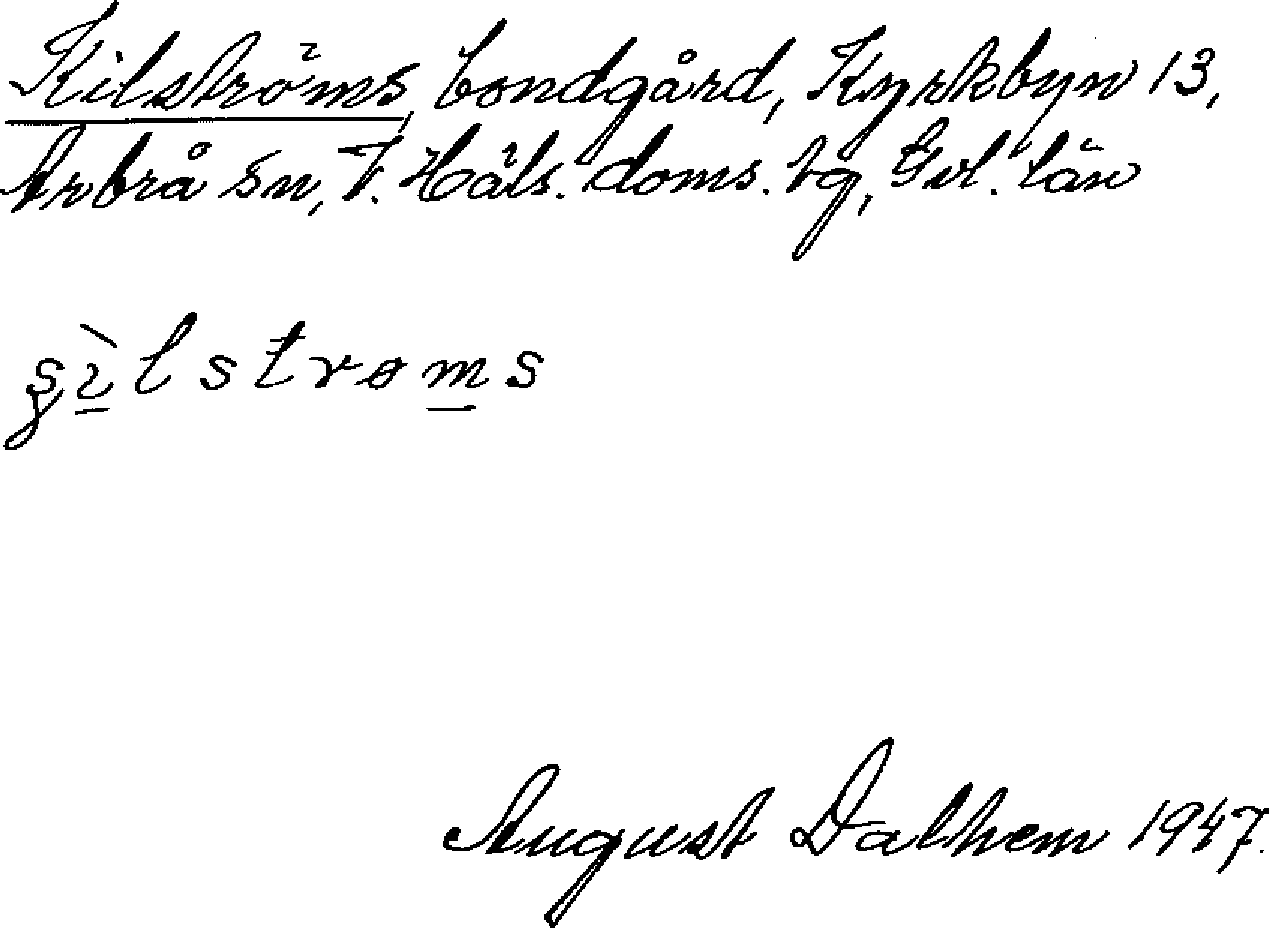 Kilströms, bondgård, Kyrkbyn 13,
Arbrå sn, V. Häls. doms. tg, Gvl. län
s̨ìlstrøms
August Dalhem 1947.